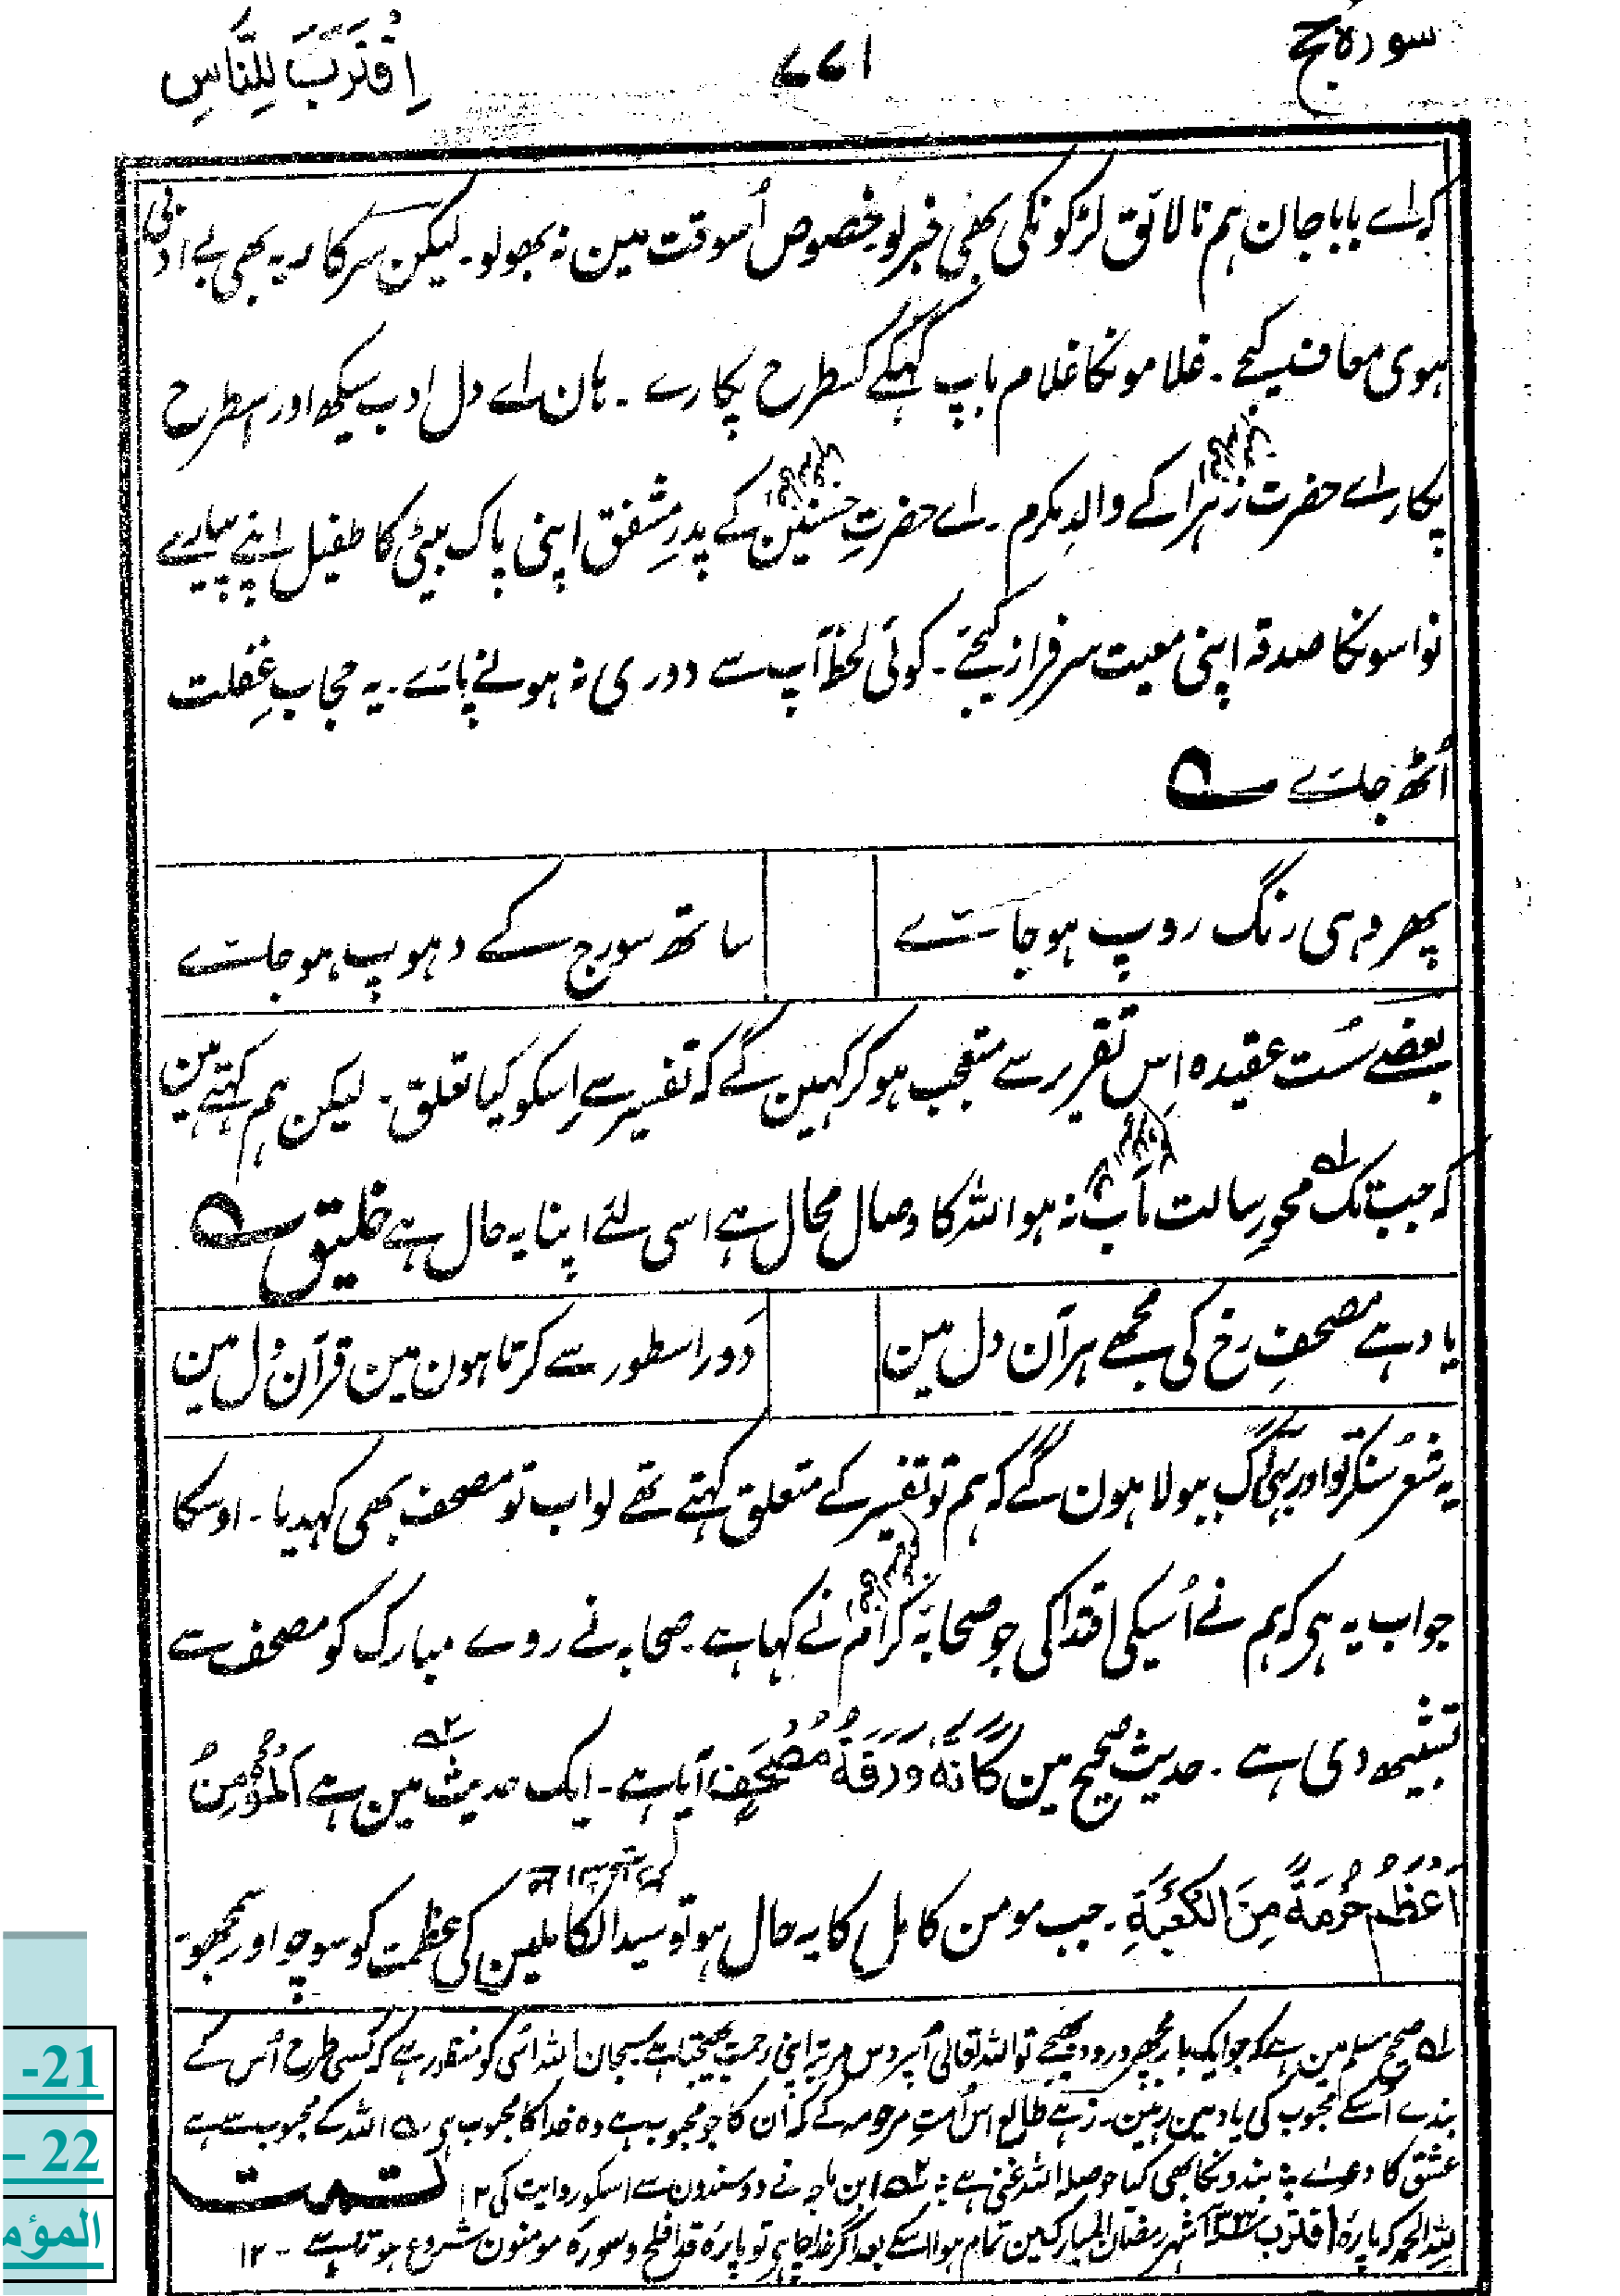 سورہ حج
۷۷۱
اِقْتَرَبَ لِلنَّاسِ
کہ اے بابا جان ہم نالائق لڑکونکی بھی خبر لو بخصوص اُسوقت مین نہ بھولو۔ لیکن سرکار یہ بھی بے ادبی
ہوی معاف کیجے۔ غلامونکا غلام باپ کہکے کسطرح پکارے۔ ہان اے دل ادب سیکھ اور اسطرح
پکار اے حضرت زہرا کے والدِ مکرم۔ اے حضرتِ حسنین کے پدرِ مشفق اپنی پاک بیٹی کا طفیل اپنے پیارے
نواسونکا صدقہ اپنی معیت سرفراز کیجئے۔ کوئی لحظہ آپ سے دوری نہ ہونے پائے۔ یہ حجابِ غفلت
اُٹھ جائے ؎
پھر وہی رنگ روپ ہو جائے
ساتھ سورج کے دہوپ ہو جائے
بعضے سُست عقیدہ اِس تقریر سے متعجب ہو کر کہین گے کہ تفسیر سے اِسکو کیا تعلق۔ لیکن ہم کہتے ہین
کہ جب تک محوِ رسالت مآب نہ ہو اللہ کا وصال محال ہے اسی لئے اپنا یہ حال ہے خلیق ؎
یاد ہے مصحفِ رخ کی مجھے ہر آن دل مین
دَور اسطور سے کرتا ہون مین قرآن دل مین
یہ شعر سُنکر تو اور بہی آگ بولا ہون گے کہ ہم تو تفسیر کے متعلق کہتے تھے لو اب تو مصحف بھی کہدیا۔ اوسکا
جواب یہ ہی کہ ہم نے اُسیکی اقتدا کی جو صحابۂ کرام نے کہا ہے۔ صحابہ نے روے مبارک کو مصحف سے
تشبیہ دی ہے۔ حدیث صحیح مین كَاَنَّهٗ وَرَقَةُ مُصْحَفٍ آیا ہے۔ ایک حدیث ۲ مین ہے اَلْمُؤْمِنُ
اَعْظَمُ حُرْمَةً مِنَ الْكَعْبَةِ۔ جب مومن کامل کا یہ حال ہو تو سید الکاملین کی عظمت کو سوچو اور سمجھو
۱ صحیح مسلم مین ہے کہ جو ایک بار مجھپر درود بھیجے تو اللہ تعالی اُسپر دس مرتبہ اپنی رحمت بھیجتا ہے سبحان اللہ اسی کو منظور ہے کہ کسی طرح اُس کے
بندے اُسکے محبوب کی یاد مین رہین۔ زہے طالع اس اُمتِ مرحومہ کے کہ اُن کا جو محبوب ہے وہ خدا کا محبوب ہی ؎ اللہ کے محبوب سے ہے
عشق کا دعوے بندونکا بھی کیا حوصلہ اللہ غنی ہے ۲ ابن ماجہ نے دو سندون سے اسکو روایت کی ۱۲ تمت
للہ الحمد کہ پارہ اقترب شہر رمضان المبارک مین تمام ہوا اسکے بعد اگر خدا چاہی تو پارۂ قد افلح و سورۂ مومنون شروع ہوتا ہے۔ ۱۲
21-
22 –
المؤم